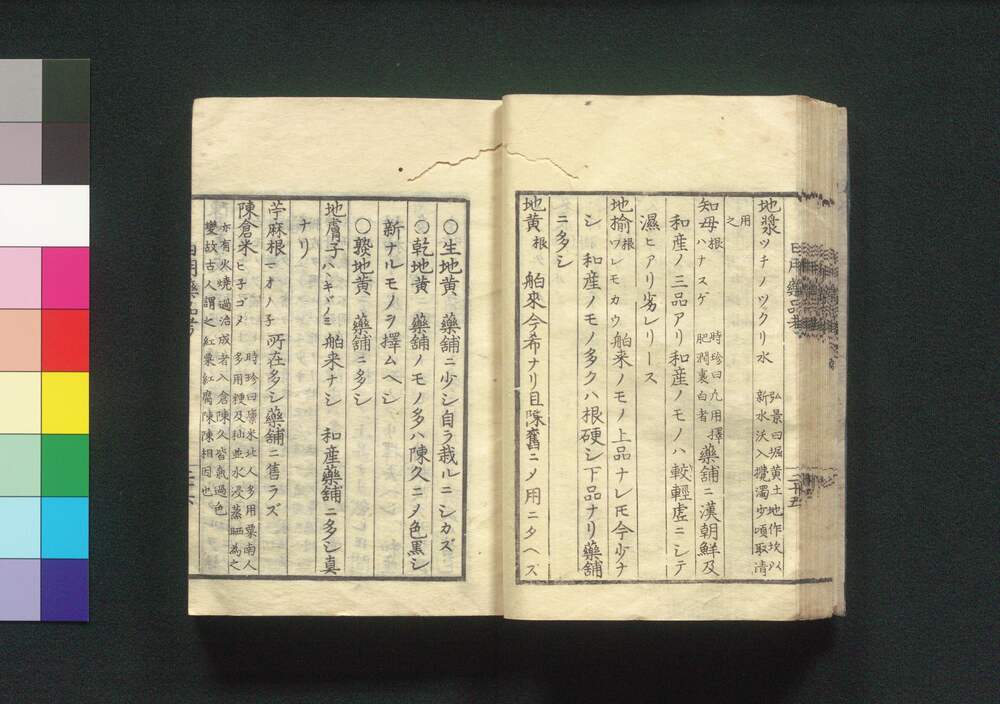 日用藥品考
二十五
地漿 ツチノツクリ水 弘景曰掘黄土地作坎以
新水沃入攪濁少頃取清
用
之
知母 根 ハナスゲ 時珍曰凡用擇
肥潤裏白者 藥舗ニ漢朝鮮及
和産ノ三品アリ和産ノモノハ較輕虚ニシテ
濕ヒアリ劣レリース
地揄 根 ワレモカウ 舶來ノモノ上品ナレ𪜈今少ナ
シ 和産ノモノ多クハ根硬シ下品ナリ藥舗
ニ多シ
地黄 根 舶來今希ナリ且陳舊ニメ用ニタヘズ
○生地黄 藥舗ニ少シ自ラ栽ルニシカズ
○乾地黄 藥舗ノモノ多ハ陳久ニメ色黒シ
新ナルモノヲ擇ムヘシ
○熟地黄 藥舗ニ多シ
地膚子 ハヽキヾノミ 舶来ナシ 和産藥舗ニ多シ真
ナリ
苧麻根 マオノ子 所在多シ藥舗ニ售ラズ
陳倉米 ヒ子ゴメ 時珍曰廩米北人多用粟南人
多用粳及秈並水浸蒸晒為之
亦有火燒過治成者入倉陳久皆氣過色
變故古人謂之紅粟紅腐陳陳相因也
日用藥品考